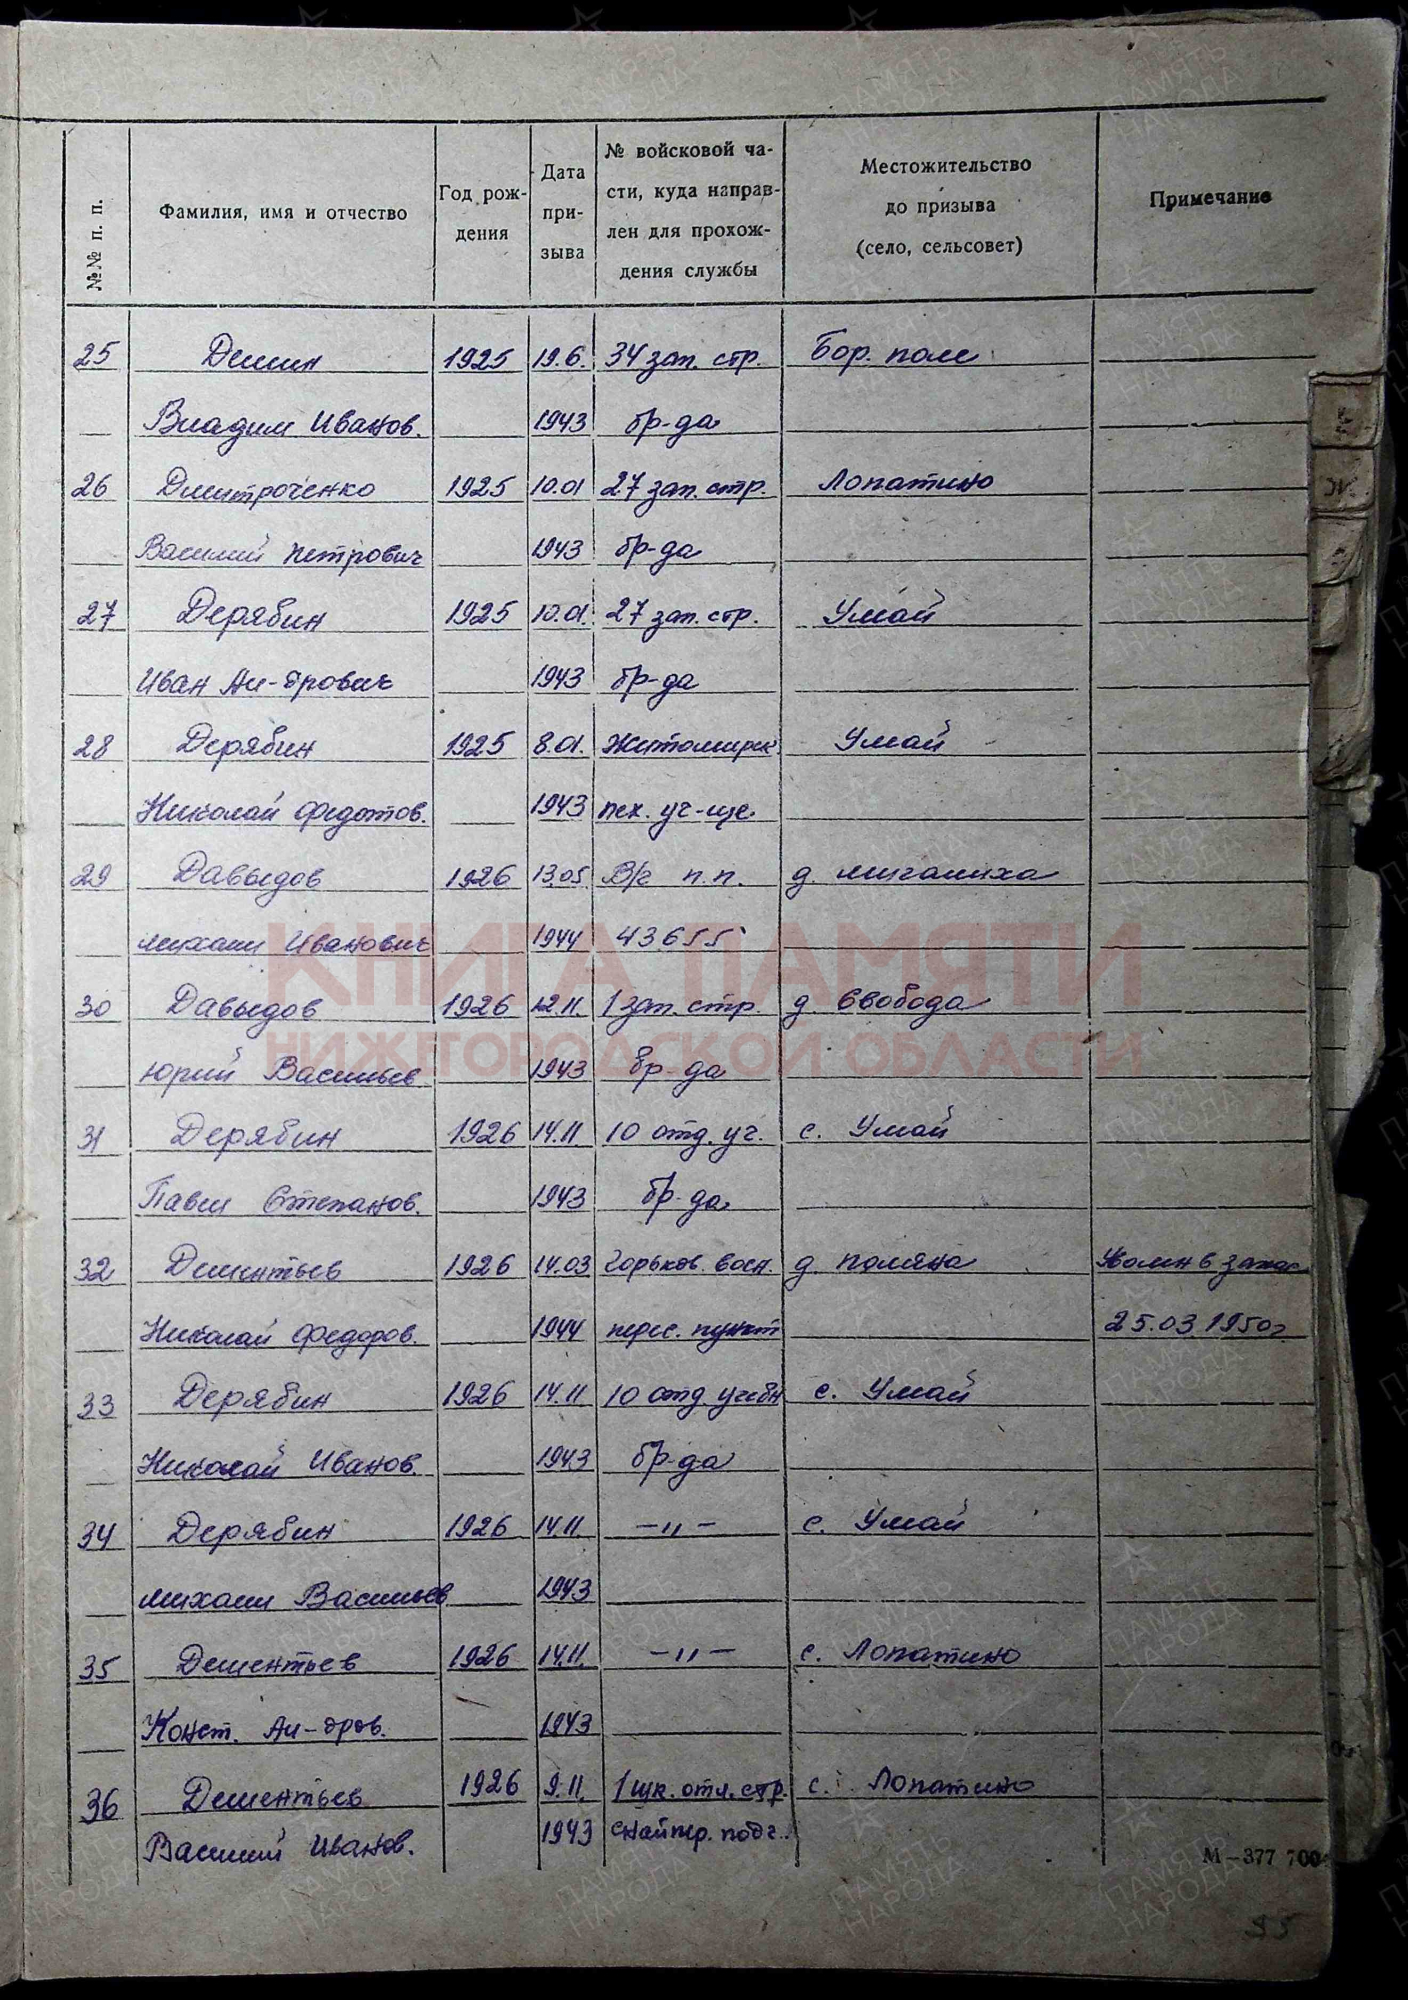 №№ п. п.
Фамилия, имя и отчество
Год рож-
дения
Дата
при-
зыва
№ войсковой ча-
сти, куда направ-
лен для прохож-
дения службы
Местожительство
до призыва
(село, сельсовет)
Примечание
25 Демин 1925 19.6. 34 зап. стр. Бор. поле
Владим Иванов. 1943 бр-да
26 Дмитроченко 1925 10.01 27 зап. стр. Лопатино
Василий Петрович 1943 бр-да
27 Дерябин 1925 10.01. 27 зап. стр. Умай
Иван Ал-дрович 1943 бр-да
28 Дерябин 1925 8.01. Житомирск Умай
Николай Федотов. 1943 пех. уч-ще
29 Давыдов 1926 13.05. В/ч п.п. д. Мигалиха
Михаил Иванович 1944 43655
30 Давыдов 1926 12.11. 1 зап. стр. д. Свобода
Юрий Васильев 1943 бр-да
31 Дерябин 1926 14.11 10 отд. уч. с. Умай
Павел Степанов. 1943 бр-да
32 Дементьев 1926 14.03 Горьков. воен. д. Поляна Уволен в запас
Николай Федоров. 1944 перес. пункт 25.03.1950г
33 Дерябин 1926 14.11 10 отд. учебн с. Умай
Николай Иванов. 1943 бр-да
34 Дерябин 1926 14.11. –"– с. Умай
Михаил Васильев 1943
35 Дементьев 1926 14.11. –"– с. Лопатино
Конст. Ал-дров. 1943
36 Дементьев 1926 9.11. 1 шк. отл. стр. с. Лопатино
Василий Иванов. 1943 снайпер. подг.
М–377 700
95
КНИГА ПАМЯТИ
НИЖЕГОРОДСКОЙ ОБЛАСТИ
ПАМЯТЬ
НАРОДА